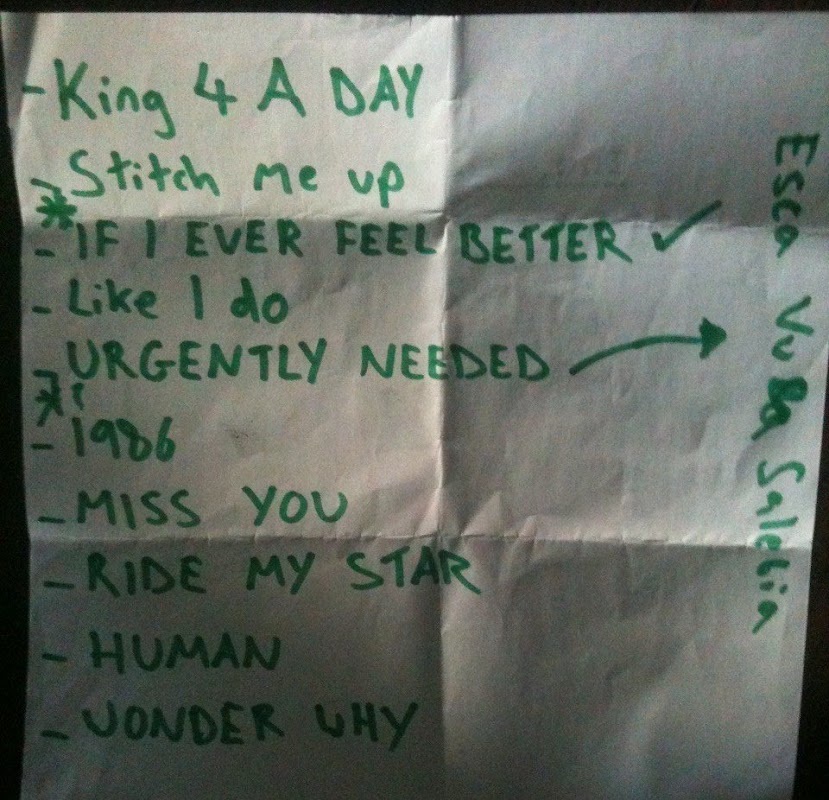 - King 4 A DAY
- Stitch me up
* - IF I EVER FEEL BETTER ✓
- Like I do
- URGENTLY NEEDED →
* - 1986
- MISS YOU
- RIDE MY STAR
- HUMAN
- WONDER WHY
Esca